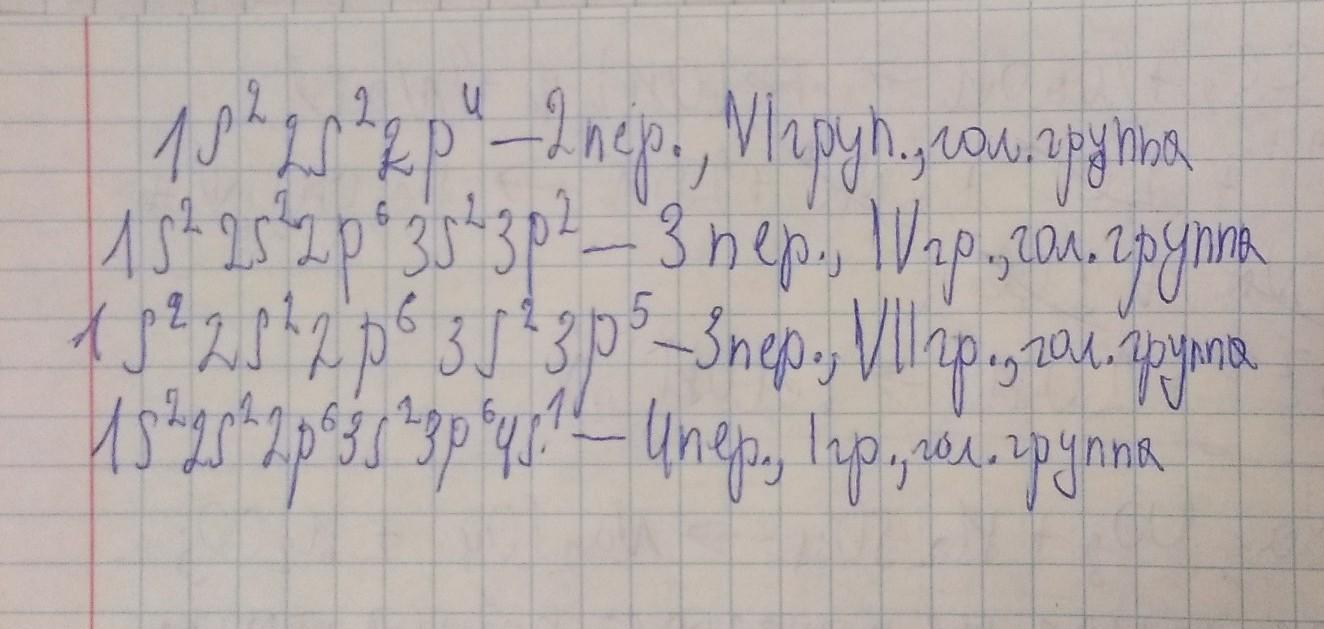 1s² 2s² 2p⁴ – 2 пер., VI груп., гол. группа
1s² 2s² 2p⁶ 3s² 3p² – 3 пер., IV гр., гол. группа
1s² 2s² 2p⁶ 3s² 3p⁵ – 3 пер., VII гр., гол. группа
1s² 2s² 2p⁶ 3s² 3p⁶ 4s¹ – 4 пер., I гр., гол. группа